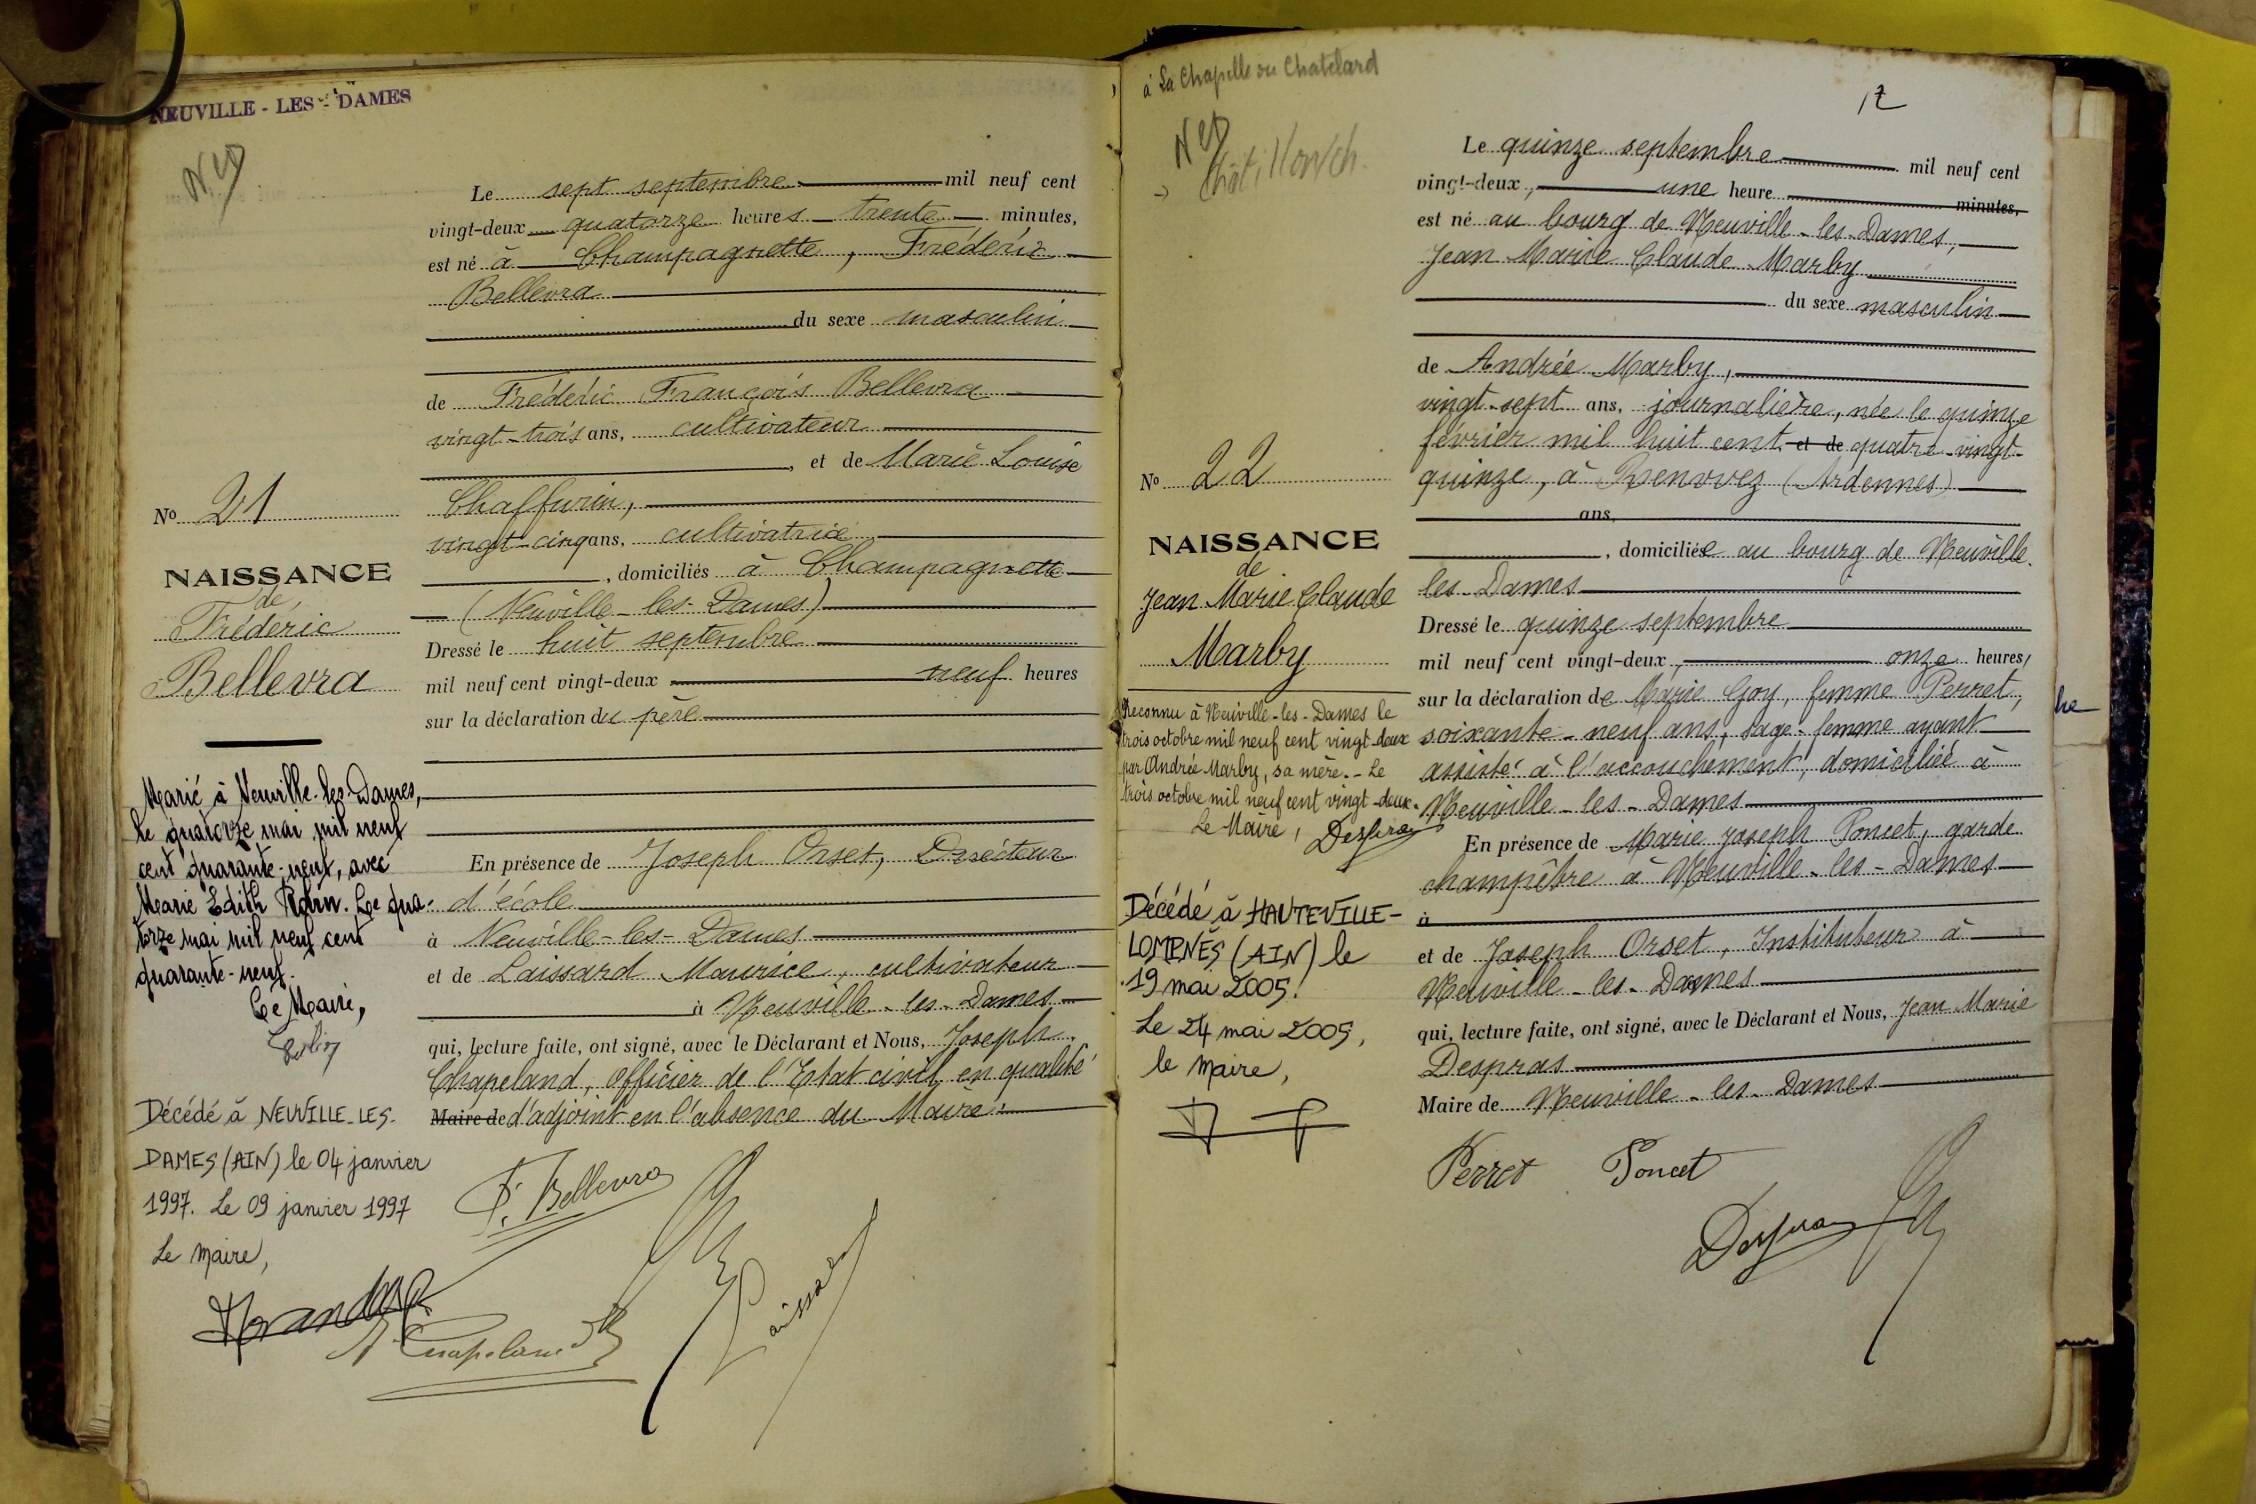 NEUVILLE - LES - DAMES
Le sept septembre mil neuf cent
vingt-deux quatorze heures trente minutes,
est né à Champagnette, Frédéric
Bellevra
du sexe masculin
de Frédéric François Bellevra
vingt-trois ans, cultivateur
, et de Marie Louise
Chaffurin,
vingt-cinq ans, cultivatrice
, domiciliés à Champagnette
(Neuville-les-Dames)
Dressé le huit septembre
mil neuf cent vingt-deux neuf heures
sur la déclaration du père
En présence de Joseph Orset, Directeur
d'école
à Neuville-les-Dames
et de Laissard Maurice, cultivateur
à Neuville-les-Dames
qui, lecture faite, ont signé, avec le Déclarant et Nous, Joseph
Chapeland, officier de l'Etat civil en qualité
Maire de d'adjoint en l'absence du Maire.
F. Bellevra
Laissard
Chapeland
No 21
NAISSANCE
de
Frédéric
Bellevra
Marié à Neuville-les-Dames,
le quatorze mai mil neuf
cent quarante-neuf, avec
Marie Edith. Le qua-
torze mai mil neuf cent
quarante-neuf.
Le Maire,
Décédé à NEUVILLE-LES-
DAMES (AIN) le 04 janvier
1997. Le 09 janvier 1997
Le Maire,
à La Chapelle du Chatelard
Châtillon/Ch.
17
Le quinze septembre mil neuf cent
vingt-deux, une heure minutes,
est né au bourg de Neuville-les-Dames,
Jean Marie Claude Marby
du sexe masculin
de Andrée Marby,
vingt-sept ans, journalière, née le quinze
février mil huit cent et de quatre-vingt-
quinze, à Renwez (Ardennes)
ans,
, domiciliée au bourg de Neuville-
les-Dames
Dressé le quinze septembre
mil neuf cent vingt-deux, onze heures,
sur la déclaration de Marie Goy, femme Perret,
soixante-neuf ans, sage-femme ayant
assisté à l'accouchement, domiciliée à
Neuville-les-Dames
En présence de Marie Joseph Poncet, garde
champêtre à Neuville-les-Dames
à
et de Joseph Orset, Instituteur à
Neuville-les-Dames
qui, lecture faite, ont signé, avec le Déclarant et Nous, Jean Marie
Despras
Maire de Neuville-les-Dames
Perret Poncet
Despras
No 22
NAISSANCE
de
Jean Marie Claude
Marby
Reconnu à Neuville-les-Dames le
trois octobre mil neuf cent vingt-deux
par Andrée Marby, sa mère. - Le
trois octobre mil neuf cent vingt-deux.
Le Maire, Despras
Décédé à HAUTEVILLE-
LOMPNÈS (AIN) le
19 mai 2005.
Le 24 mai 2005,
le Maire,
he